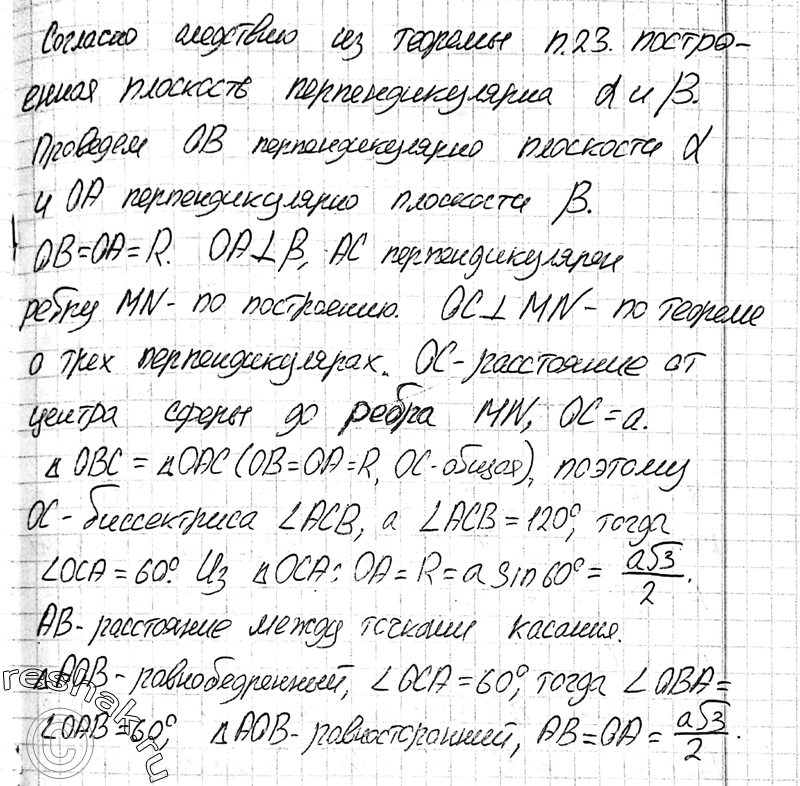 Согласно следствию из теоремы п.23. построе-
енная плоскость перпендикулярна α и β.
Проведем OB перпендикулярно плоскости α
и OA перпендикулярно плоскости β.
OB=OA=R. OA⊥β, AC перпендикулярен
ребру MN - по построению. OC⊥MN - по теореме
о трех перпендикулярах. OC - расстояние от
центра сферы до ребра MN, OC=a.
△OBC = △OAC (OB=OA=R, OC-общая), поэтому
OC - биссектриса ∠ACB, а ∠ACB=120°, тогда
∠OCA=60°. Из △OCA: OA=R=a sin60°= a√3/2.
AB - расстояние между точками касания.
△AOB - равнобедренный, ∠OCA=60°, тогда ∠OBA=
∠OAB=60°, △AOB - равносторонний, AB=OA= a√3/2.
reshak.ru
©